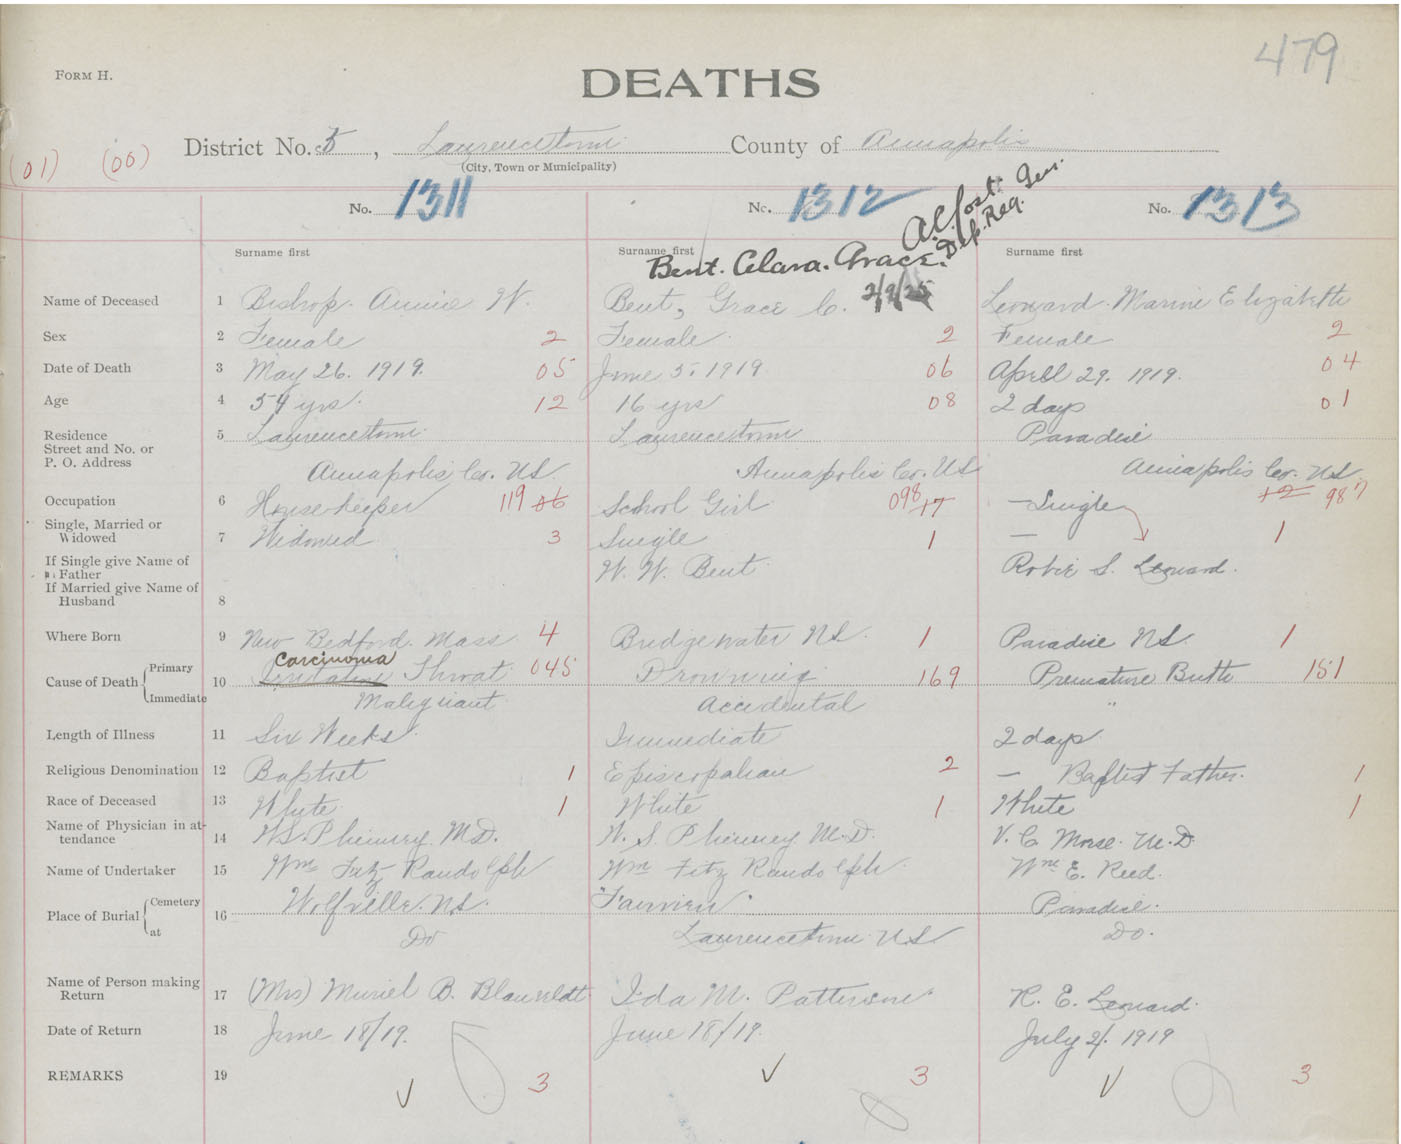 479
FORM H.
DEATHS
District No. 5, Laurencetown County of Annapolis
(City, Town or Municipality)
(01) (00)
No. 1311 No. 1312 No. 1313
Surname first Surname first Surname first
Bent. Clara. Grace. Dep. Reg. Gen.
2/9/25
Name of Deceased 1 Bishop. Annie W. Bent, Grace C. Leonard. Marine Elizabeth
Sex 2 Female 2 Female 2 Female 2
Date of Death 3 May 26. 1919. 05 June 5. 1919 06 April 29. 1919. 04
Age 4 54 yrs. 12 16 yrs 08 2 days 01
Residence
Street and No. or 5 Laurencetown Laurencetown Paradise
P. O. Address Annapolis Co. NS Annapolis Co. NS Annapolis Co. NS
Occupation 6 House-keeper 119 06 School Girl 098 17 — Single 12 987
Single, Married or
Widowed 7 Widowed 3 Single 1 — 1
If Single give Name of
Father W. W. Bent Robie S. Leonard.
If Married give Name of
Husband 8
Where Born 9 New Bedford. Mass 4 Bridgewater NS. 1 Paradise NS 1
Carcinoma
Cause of Death Primary 10 Throat 045 Drowning 169 Premature Birth 151
Immediate Malignant Accidental "
Length of Illness 11 Six Weeks Immediate 2 days
Religious Denomination 12 Baptist 1 Episcopalian 2 — Baptist Father. 1
Race of Deceased 13 White 1 White 1 White 1
Name of Physician in at-
tendance 14 W.S. Phinney M.D. W. S. Phinney M.D. V. C. Morse. M.D.
Name of Undertaker 15 Wm Fitz Randolph Wm Fitz Randolph Wm E. Reed.
Place of Burial Cemetery 16 Wolfville. NS. "Fairview" Paradise.
at Do Laurencetown NS Do.
Name of Person making
Return 17 (Mrs) Muriel B. Blauveldt Ida M. Patterson R. E. Leonard.
Date of Return 18 June 18/19. June 18/19. July 2/. 1919
REMARKS 19 3 3 3